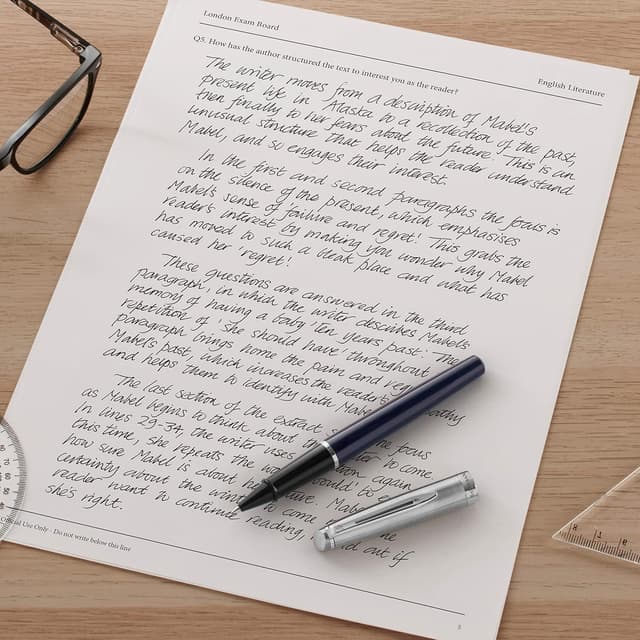 London Exam Board
English Literature
Q5. How has the author structured the text to interest you as the reader?
The writer moves from a description of Mabel's
present life in Alaska to a recollection of the past,
then finally to her fears about the future. This is an
unusual structure that helps the reader understand
Mabel, and so engages their interest.
In the first and second paragraphs the focus is
on the silence of the present, which emphasises
Mabel's sense of 'failure and regret'. This grabs the
reader's interest by making you wonder why Mabel
has moved to such a bleak place and what has
caused her 'regret'.
These questions are answered in the third
paragraph, in which the writer describes Mabel's
memory of having a baby 'ten years past'. The
repetition of 'she should have' throughout
paragraph brings home the pain and
Mabel's past, which increases the reader's
and helps them to identify with
The last section of the extract the focus
as Mabel begins to think about to come.
In lines 29-34, the writer uses again
this time, she repeats the to
how sure Mabel is about
certainty about the to come
reader want to continue reading, out if
she's right.
Official Use Only - Do not write below this line